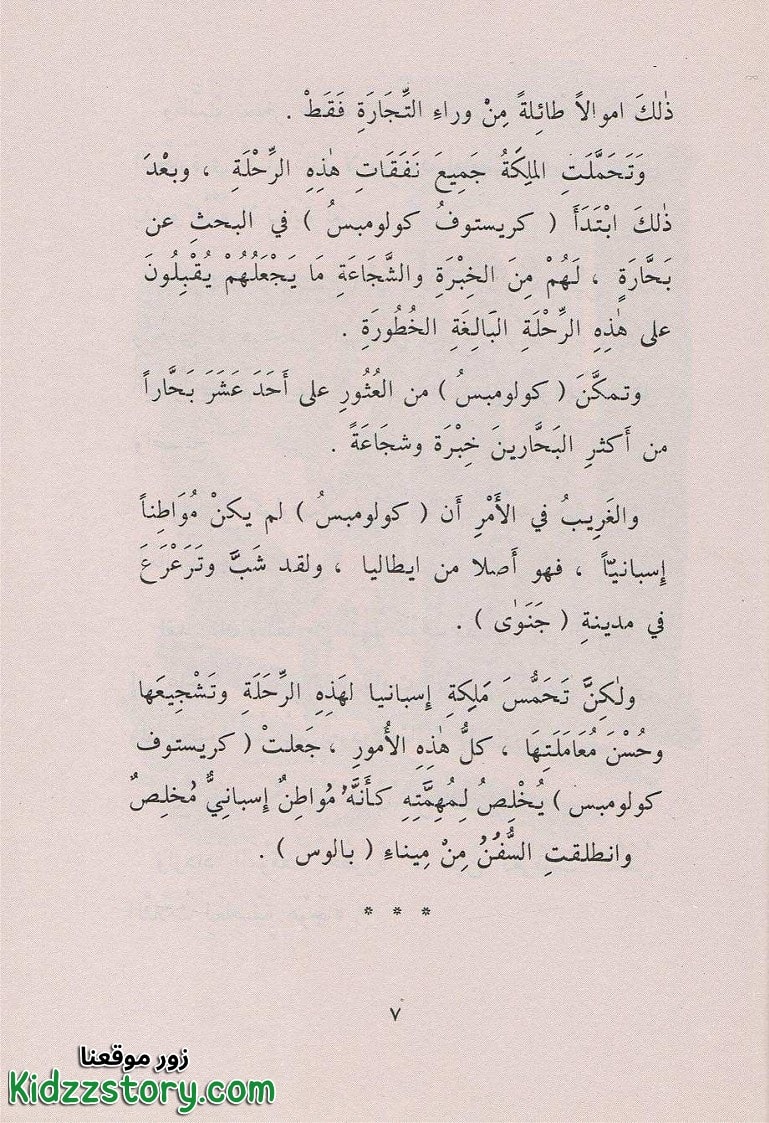 ذٰلكَ اموالاً طائِلةً مِنْ وراءِ التِّجَارَةِ فَقَطْ .
وَتَحَمَّلَتِ الملِكَةُ جَمِيعَ نَفَقَاتِ هٰذِهِ الرِّحْلَةِ ، وبعْدَ
ذٰلكَ ابْتَدَأَ ( كريستوفُ كولومبسُ ) في البحثِ عن
بَحَّارَةٍ ، لَهُمْ مِنَ الخِبْرَةِ والشَّجَاعَةِ مَا يَجْعَلُهُمْ يُقْبِلُونَ
على هٰذِهِ الرِّحْلَةِ البَالِغَةِ الخُطُورَةِ .
وتمكَّنَ ( كولومبسُ ) من العُثُورِ على أَحَدَ عَشَرَ بَحَّاراً
من أَكثرِ البَحَّارينَ خِبْرَة وشجَاعَةً .
والغَرِيبُ في الأَمْرِ أَن ( كولومبسُ ) لم يكنْ مُوَاطِناً
إِسبانيّاً ، فهو أَصلا من ايطاليا ، ولقد شَبَّ وتَرَعْرَعَ
في مدينةِ ( جَنَوٰى ) .
ولٰكِنَّ تَحَمُّسَ مَلِكِةِ إِسبانيا لهَذِهِ الرِّحَلَةِ وتَشْجِيعَها
وحُسْنَ مُعَامَلَتِهَا ، كلُّ هٰذِهِ الأُمورِ ، جَعلتْ ( كريستوف
كولومبس ) يُخْلِصُ لِمُهِمَّتِهِ كأَنَّهُ مُواطِنٌ إِسبانيٌّ مُخلِصٌ
وانطلقتِ السُّفُنُ مِنْ مِيناءِ ( بالوس ) .
* * *
٧
زور موقعنا
Kidzzstory.com